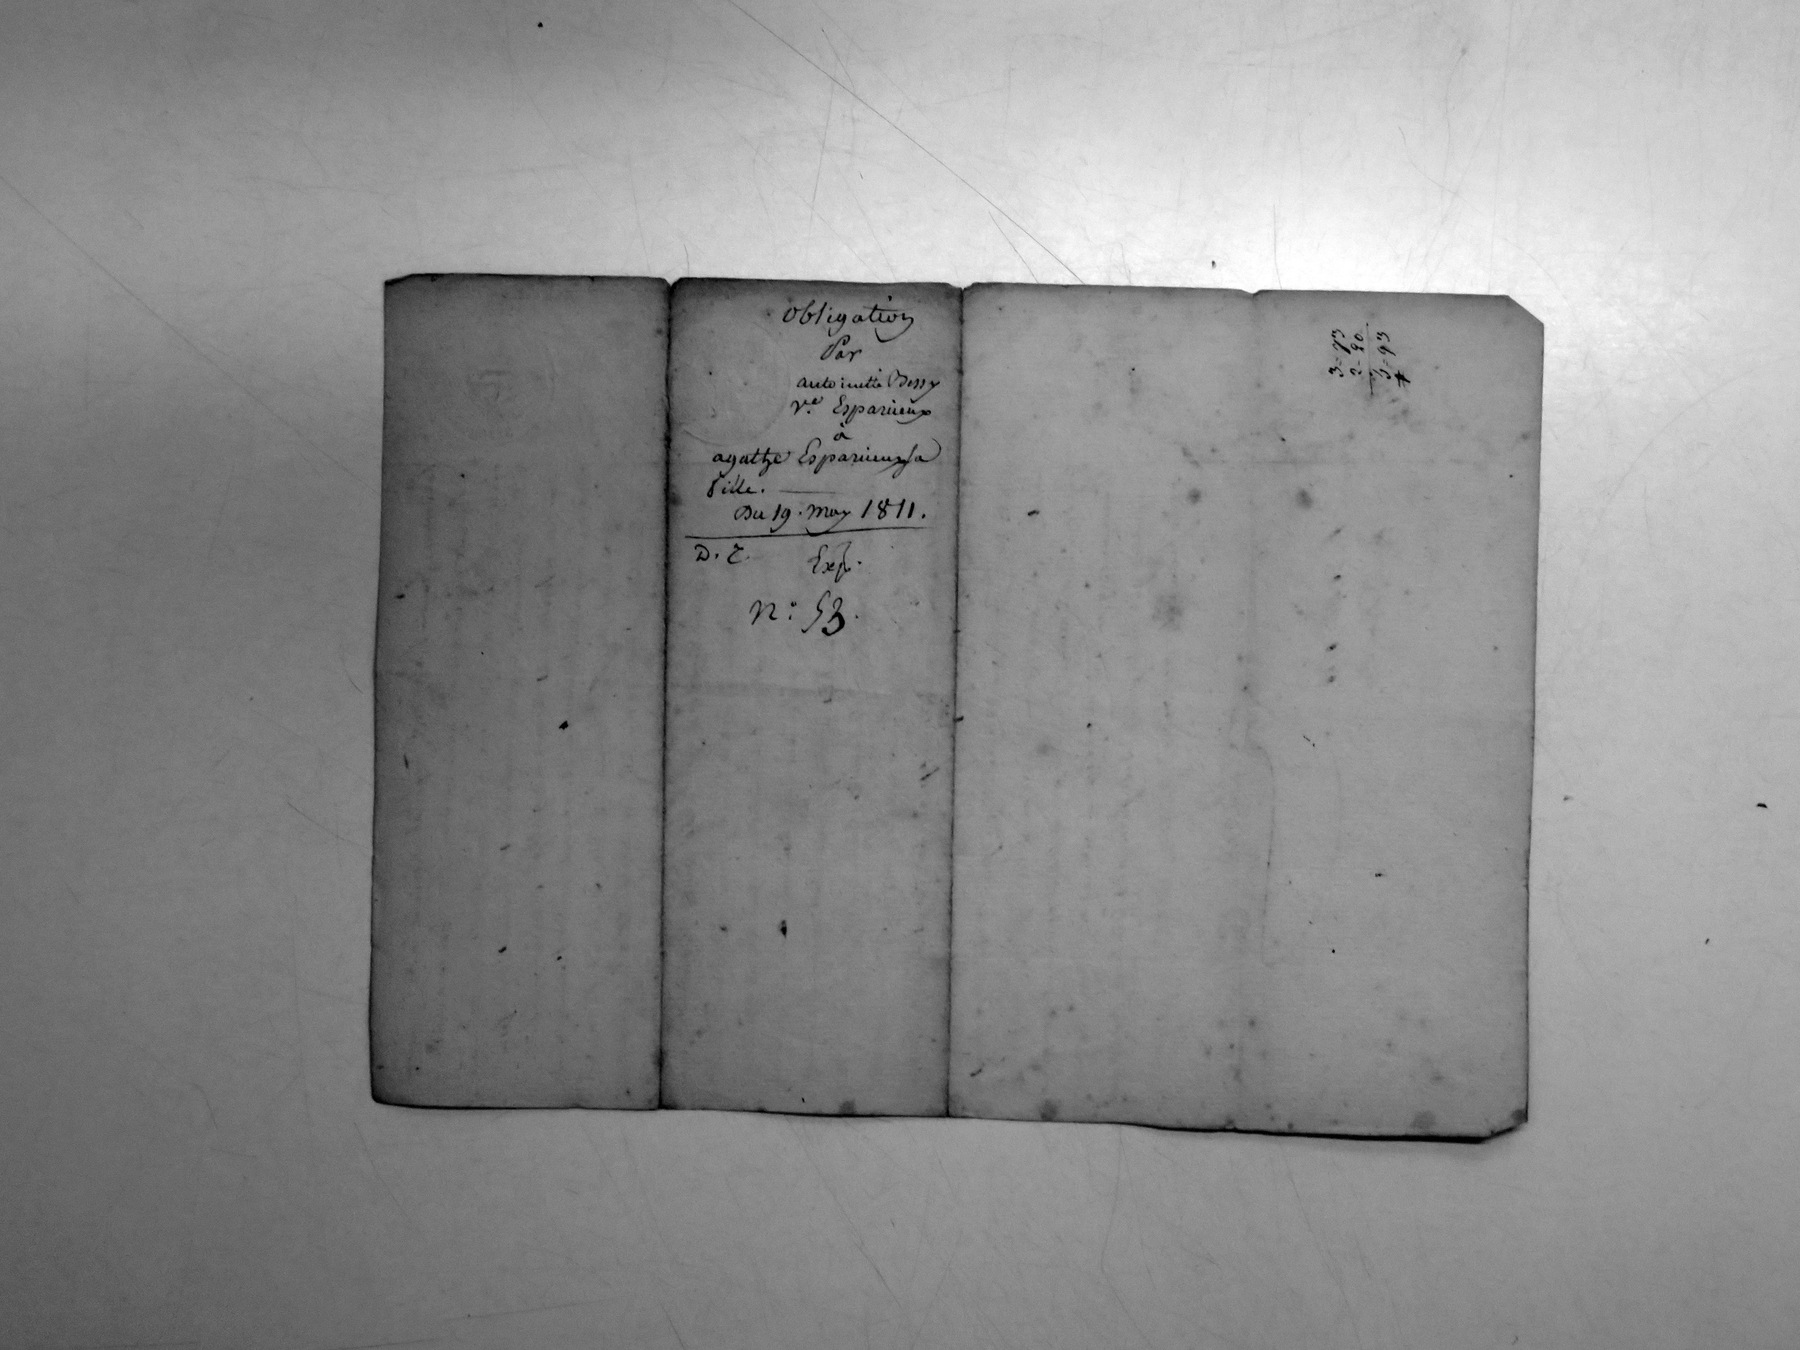 Obligation
Par
antoinette Bessy
V.e Esparieux
à
agathe Esparieux sa
fille.
Du 19. may 1811.
D. T. Exp.
N.° 53.
3= 73
2= 20